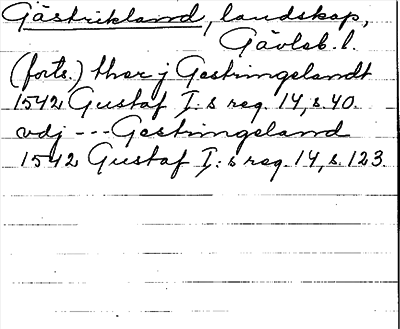 Gästrikland, landskap,
Gävleb. l.
(forts.) ther j Gestringelandt
1542 Gustaf I:s reg. 14, s. 40.
vdj --- Gestringeland
1542 Gustaf I:s reg. 14, s. 123.